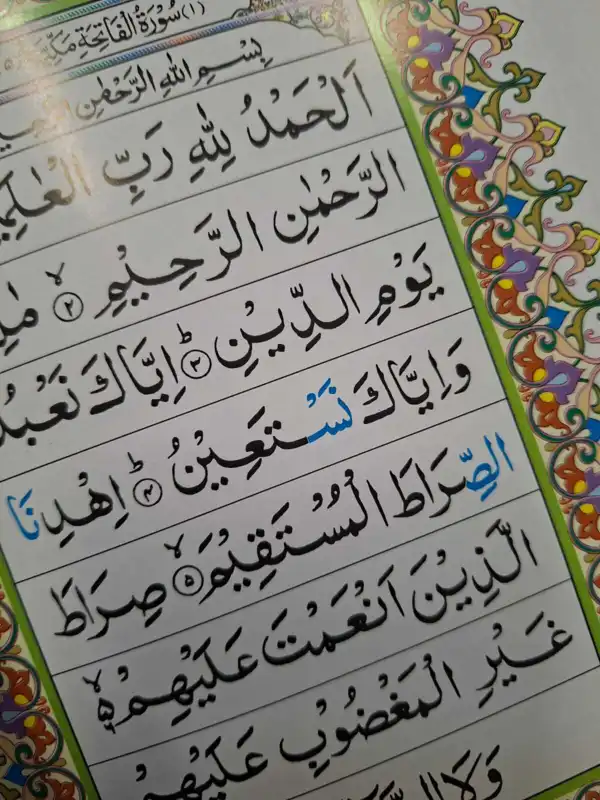 (١) سُوْرَةُ الْفَاتِحَةِ مَكِّيَّةٌ
بِسْمِ اللهِ الرَّحْمٰنِ الرَّحِيْمِ
اَلْحَمْدُ لِلّٰهِ رَبِّ الْعٰلَمِ
الرَّحْمٰنِ الرَّحِيْمِ ۙ﴿۲﴾ مٰلِ
يَوْمِ الدِّيْنِ ؕ﴿۳﴾ اِيَّاكَ نَعْبُدُ
وَاِيَّاكَ نَسْتَعِيْنُ ؕ﴿۴﴾ اِهْدِنَا
الصِّرَاطَ الْمُسْتَقِيْمَ ۙ﴿۵﴾ صِرَاطَ
الَّذِيْنَ اَنْعَمْتَ عَلَيْهِمْ ۙ۵
غَيْرِ الْمَغْضُوْبِ عَلَيْهِمْ
وَلَا